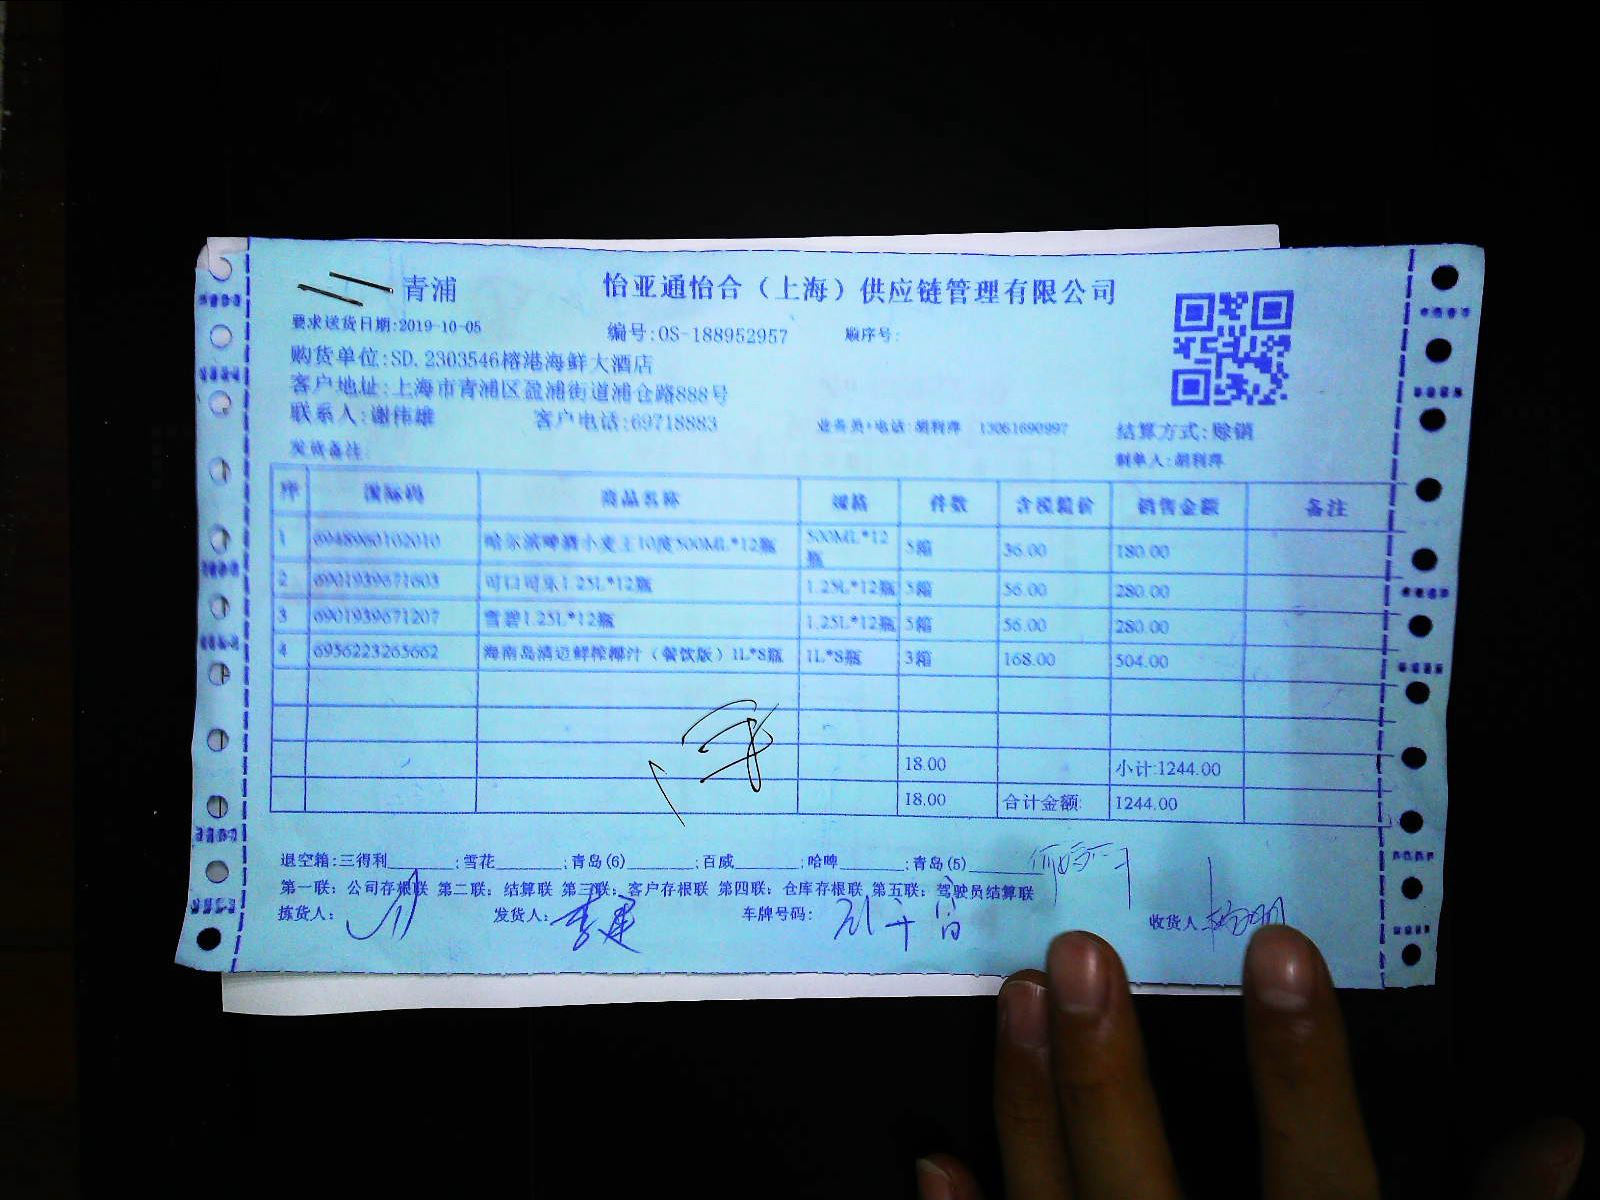 青浦
怡亚通怡合（上海）供应链管理有限公司
要求送货日期:2019-10-05 编号:OS-188952957 顺序号:
购货单位:SD.2303546榕港海鲜大酒店
客户地址:上海市青浦区盈浦街道浦仓路888号
联系人:谢伟雄 客户电话:69718883 业务员+电话:胡利萍 13061690997 结算方式:赊销
发货备注: 制单人:胡利萍
序 国际码 商品名称 规格 件数 含税箱价 销售金额 备注
1 6948960102010 哈尔滨啤酒小麦王10度500ML*12瓶 500ML*12瓶 5箱 36.00 180.00
2 6901939671603 可口可乐1.25L*12瓶 1.25L*12瓶 5箱 56.00 280.00
3 6901939671207 雪碧1.25L*12瓶 1.25L*12瓶 5箱 56.00 280.00
4 6956223265662 海南岛滴迈鲜榨椰汁（餐饮版）1L*8瓶 1L*8瓶 3箱 168.00 504.00
18.00 小计:1244.00
18.00 合计金额: 1244.00
退空箱:三得利_______;雪花_______;青岛(6)_______;百威_______;哈啤_______;青岛(5)_______
第一联：公司存根联 第二联：结算联 第三联：客户存根联 第四联：仓库存根联 第五联：驾驶员结算联
拣货人: 发货人: 李 车牌号码: 收货人